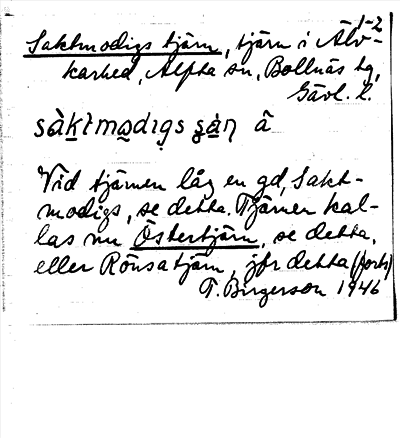 1-2
Saktmodigs tjärn, tjärn i Älv-
karhed, Alfta sn, Bollnäs tg,
Gävl. l.
sàktmodıgs ʂàɳ â
Vid tjärnen låg en gd, Sakt-
modigs, se detta. Tjärnen kal-
las nu Östertjärn, se detta,
eller Rönsatjärn, jfr detta (forts)
T. Birgerson 1946